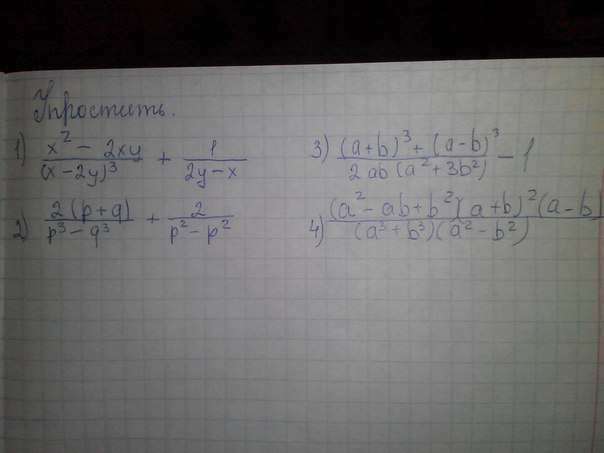 Упростить.
1) (x² - 2xy)/(x-2y)³ + 1/(2y-x)
2) 2(p+q)/(p³-q³) + 2/(p²-p²)
3) ((a+b)³+(a-b)³)/(2ab(a²+3b²)) - 1
4) (a²-ab+b²)(a+b)²(a-b)/(a³+b³)(a²-b²)